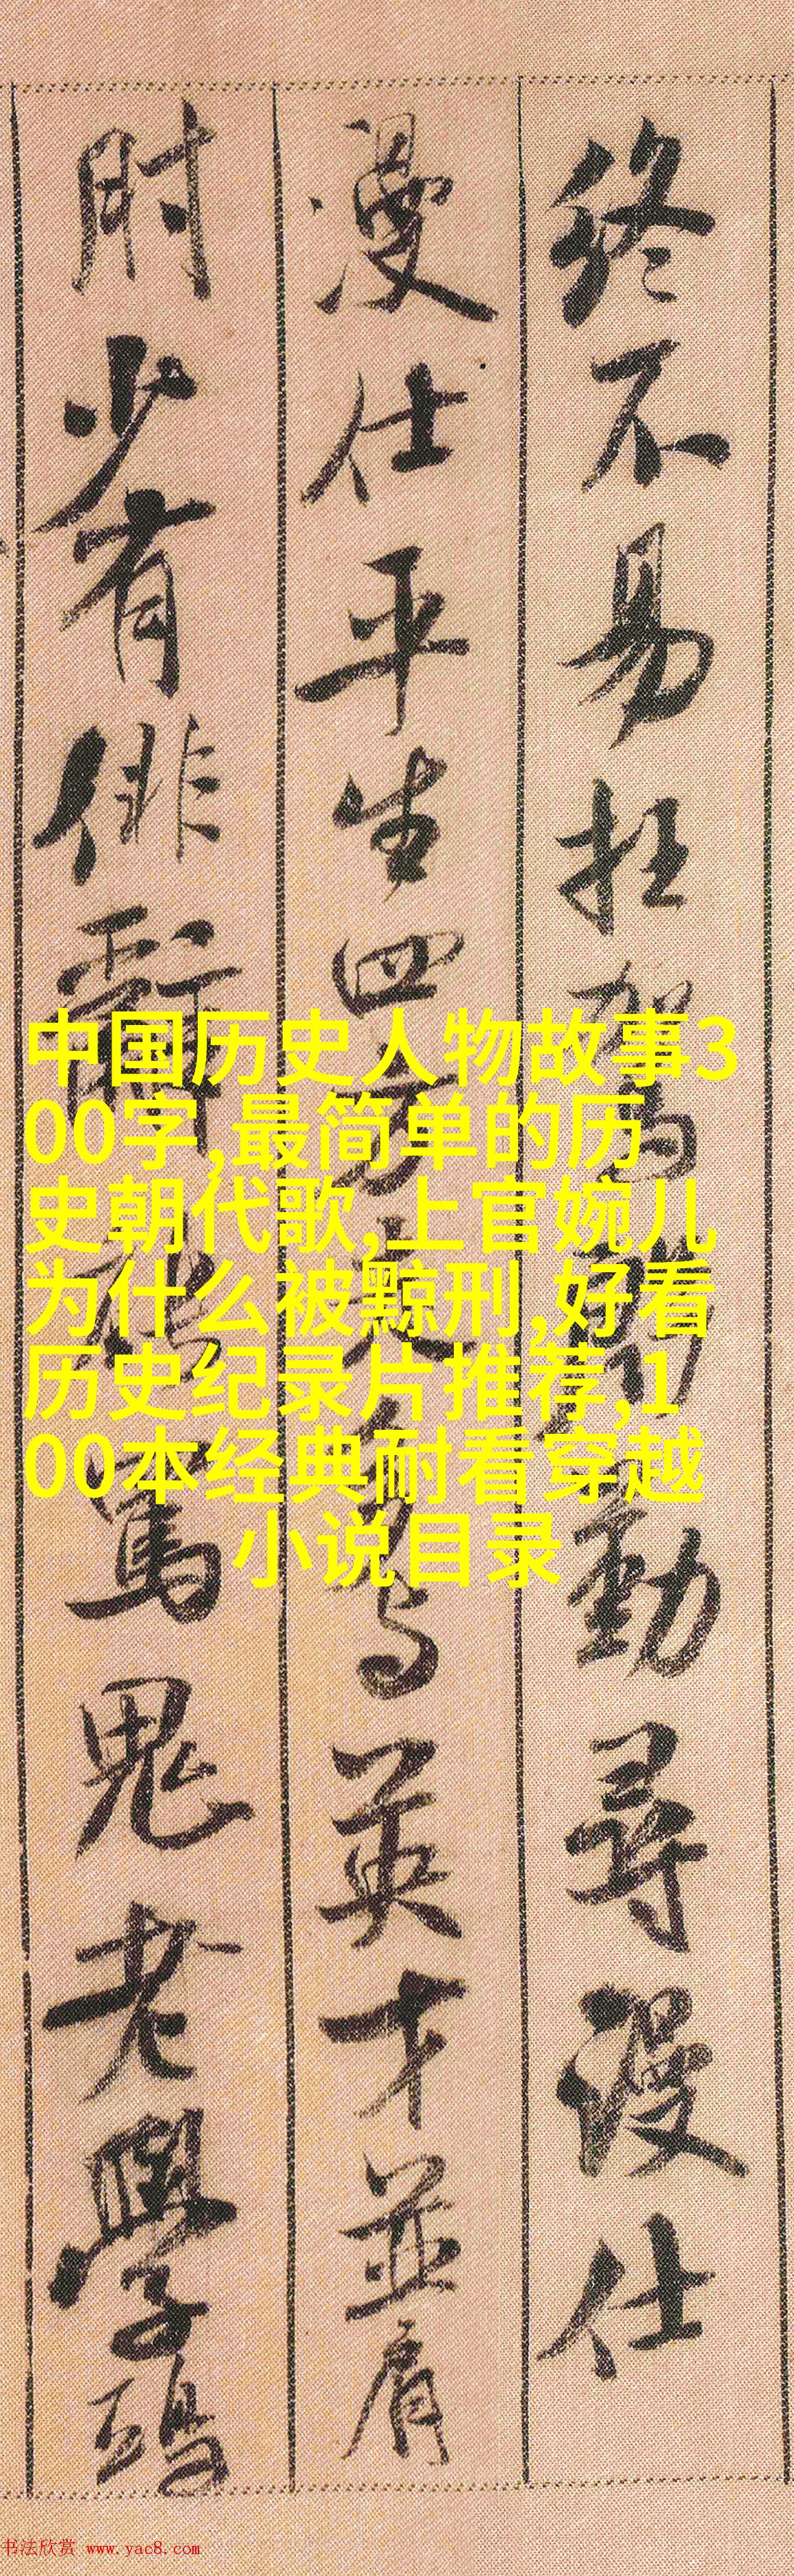 终不易抂駕勤尋漫仕
漫仕平生四方走多與英才並肩
肘少有俳辭能罵鬼老學鴟
中国历史人物故事3
00字,最简单的历
史朝代歌,上官婉儿
为什么被黥刑,好看
历史纪录片推荐,1
00本经典耐看穿越
小说目录
书法欣赏 www.yac8.com